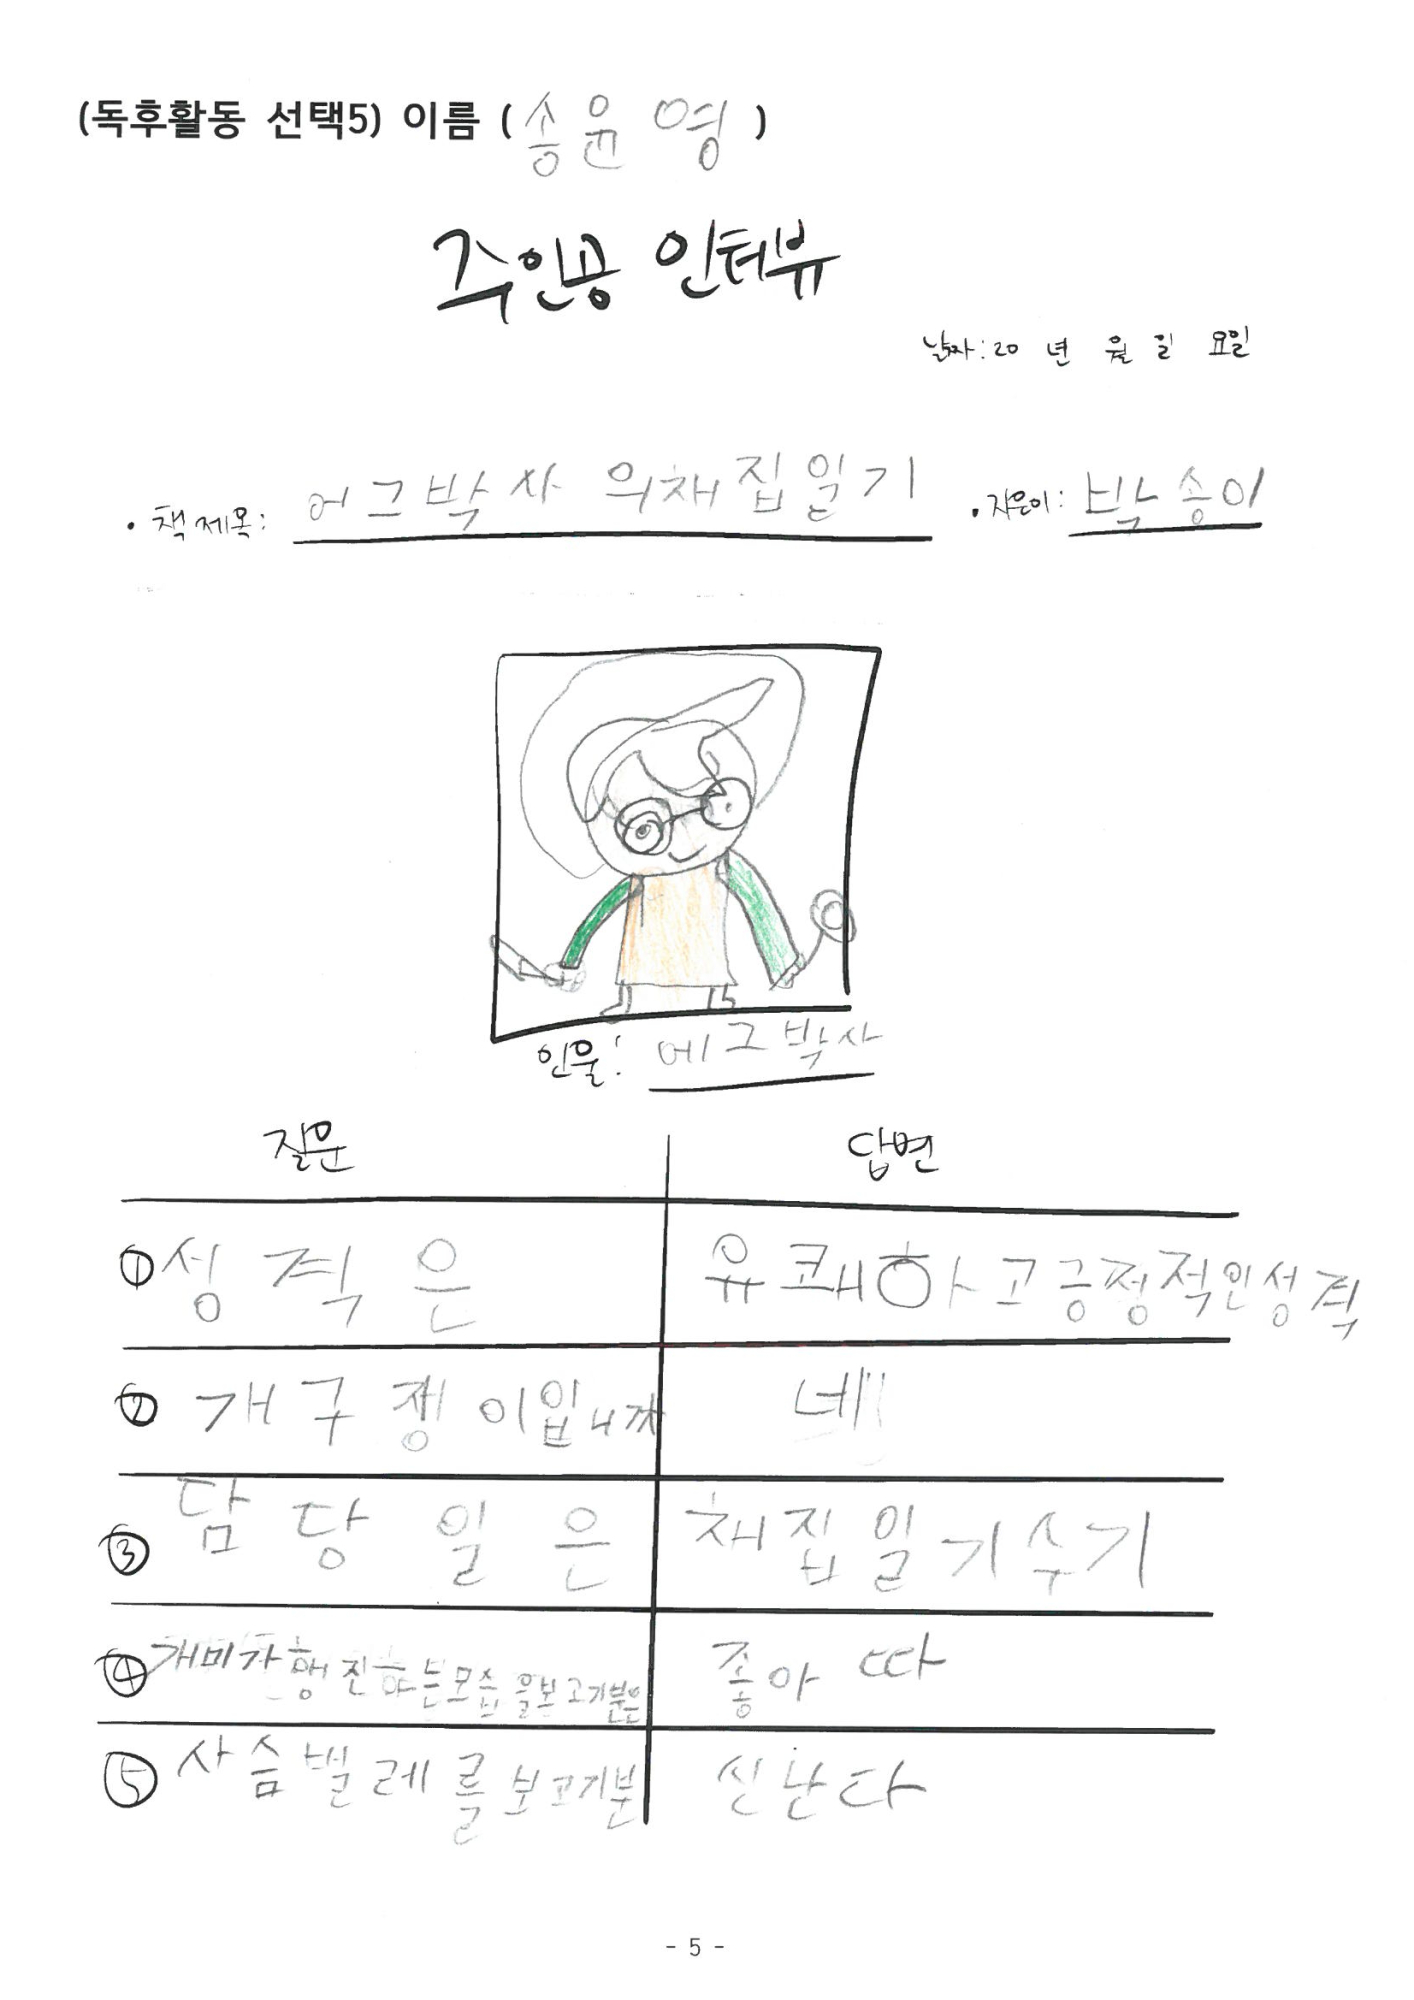 (독후활동 선택5) 이름 (송윤영)
주인공 인터뷰
날짜: 20 년 월 일 요일
• 책 제목: 에그박사 의채집일기 • 지은이: 박송이
인물: 에그박사
질문 답변
① 성격은 유쾌하고긍정적인성격
② 개구쟁이입니까 네
③ 담당일은 채집일기수기
④ 개미가행진하는모습을보고기분은 좋아따
⑤ 사슴벌레를보고기분 신난다
- 5 -